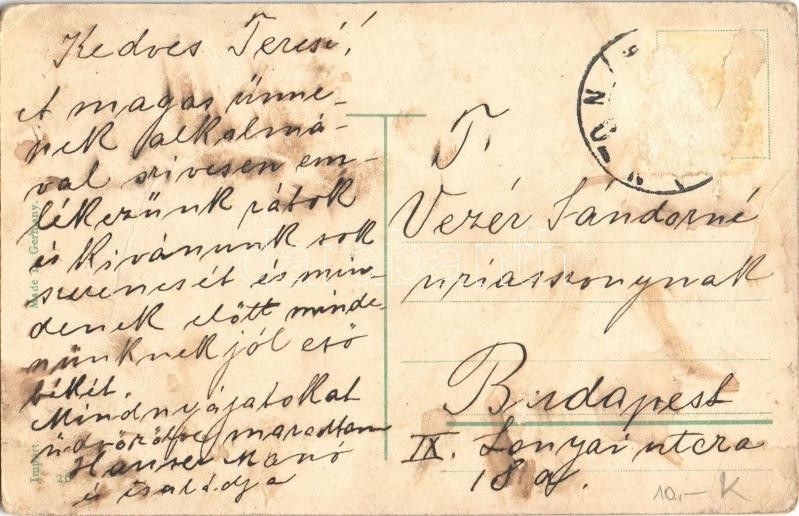 Kedves Teresi!
et magas ünne-
nek alkalmá-
val szivesen em-
lékezünk rátok
és Kivánunk sok
szerencsét és min-
denek előtt minde-
nünknek jól eső
békét.
Mindnyájatokat
üdvözölve maradtam
Hauser Manó
és családja
T.
Vezér Sándorné
uriasszonynak
Budapest
IX. Lonyai utcza
18 a.
10,- K
Made in Germany.
Import